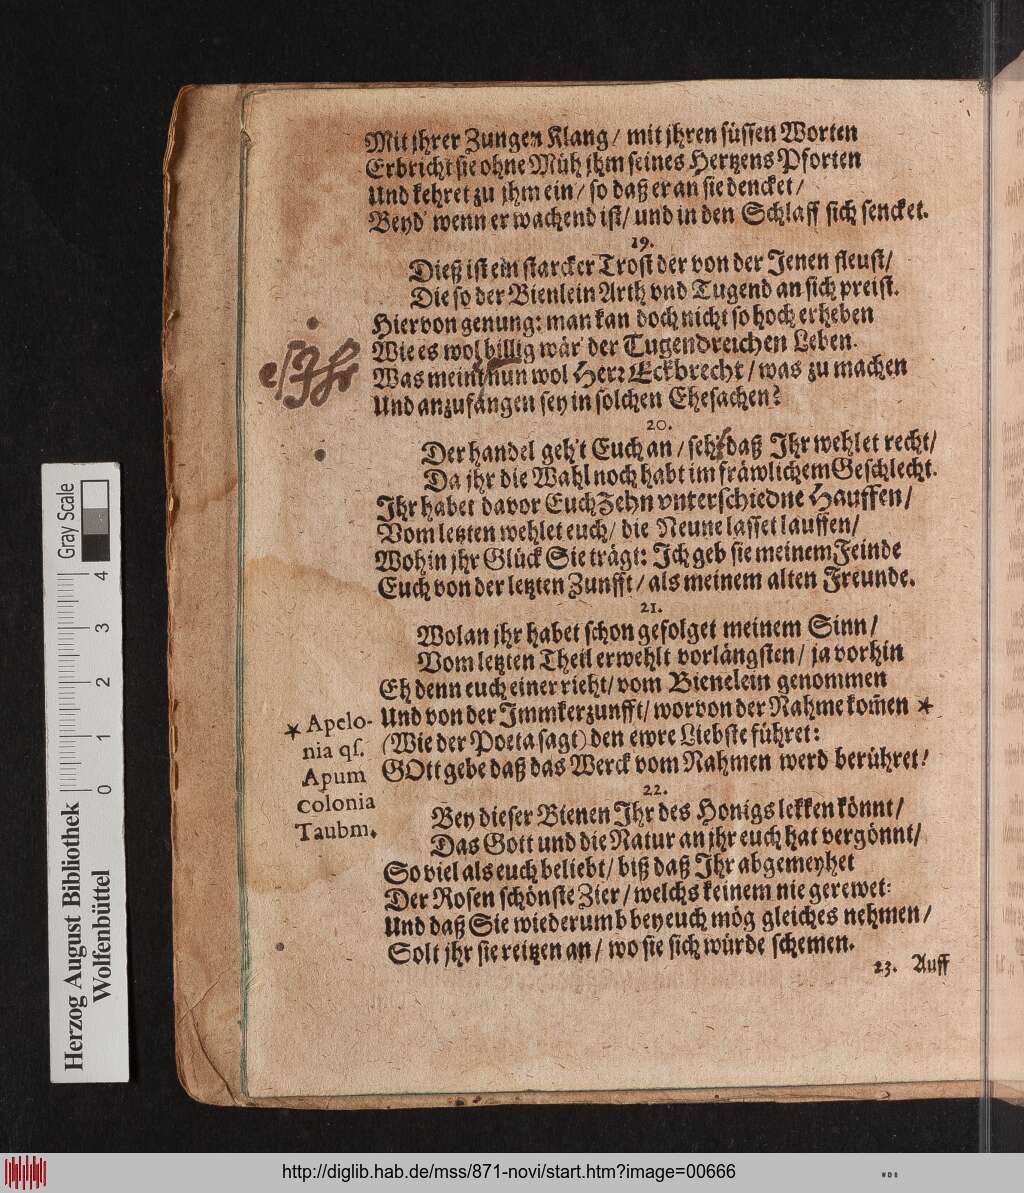 Mit jhrer Zungen Klang/ mit jhren süssen Worten
Erbricht sie ohne Müh jhm seines Hertzens Pforten
Und kehret zu jhm ein/ so daß er an sie dencket/
Beyd' wenn er wachend ist/ und in den Schlaff sich sencket.
19.
Dieß ist ein starcker Trost der von der Jenen fleust/
Die so der Bienlein Arth vnd Tugend an sich preist.
Hiervon genung: man kan doch nicht so hoch erheben
Wie es wol billig wär' der Tugendreichen Leben.
Was meint nun wol Herr Eckbrecht/ was zu machen
Und anzufangen sey in solchen Ehesachen?
20.
Der handel geh't Euch an/ seht daß Ihr wehlet recht/
Da jhr die Wahl noch habt im fräwlichem Geschlecht.
Ihr habet davor Euch Zehn vnterschiedne Hauffen/
Vom letzten wehlet euch/ die Neune lasset lauffen/
Wohin jhr Glück Sie trägt: Ich geb sie meinem Feinde
Euch von der letzten Zunfft/ als meinem alten Freunde.
21.
Wolan jhr habet schon gefolget meinem Sinn/
Vom letzten Theil erwehlt vorlängsten/ ja vorhin
Eh denn euch einer rieht/ vom Bienelein genommen
Und von der Immkerzunfft/ worvon der Nahme kom̃en *
(Wie der Poeta sagt) den ewre Liebste führet:
GOtt gebe daß das Werck vom Nahmen werd berühret!
* Apelo-
nia qs.
Apum
colonia
Taubm.
22.
Bey dieser Bienen Ihr des Honigs lekken könnt/
Das Gott und die Natur an jhr euch hat vergönnt/
So viel als euch beliebt/ biß daß Ihr abgemeyhet
Der Rosen schönste Zier/ welchs keinem nie gerewet:
Und daß Sie wiederumb bey euch mög gleiches nehmen/
Solt jhr sie reitzen an/ wo sie sich würde schemen.
23. Auff
Gray Scale
4
3
2
1
0
Herzog August Bibliothek
Wolfenbüttel
http://diglib.hab.de/mss/871-novi/start.htm?image=00666